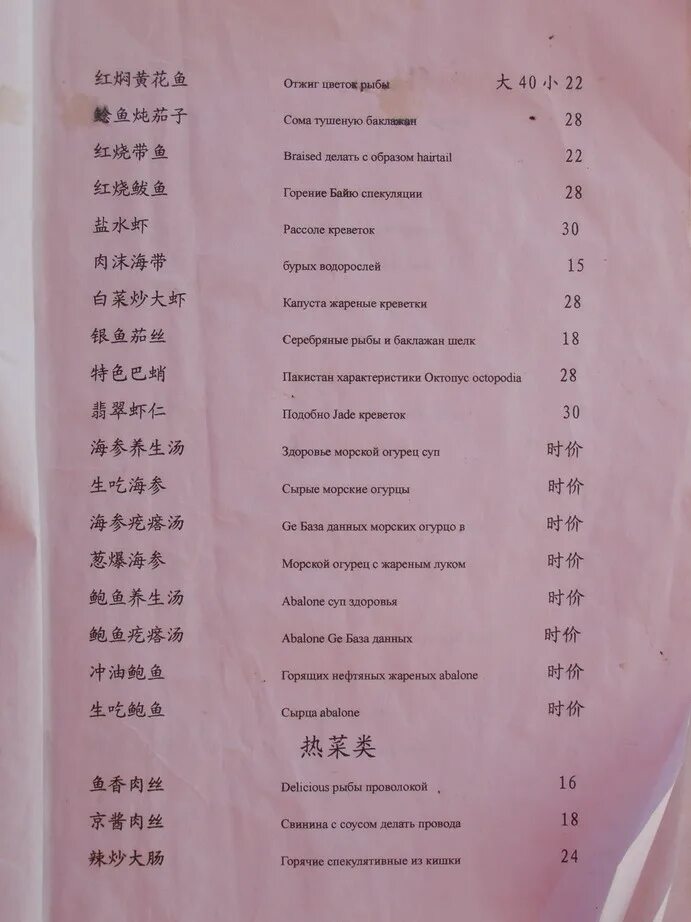 红焖黄花鱼 Отжиг цветок рыбы 大 40 小 22
鲶鱼炖茄子 Сома тушеную баклажан 28
红烧带鱼 Braised делать с образом hairtail 22
红烧鲅鱼 Горение Байю спекуляции 28
盐水虾 Рассоле креветок 30
肉沫海带 бурых водорослей 15
白菜炒大虾 Капуста жареные креветки 28
银鱼茄丝 Серебряные рыбы и баклажан шелк 18
特色巴蛸 Пакистан характеристики Октопус octopodia 28
翡翠虾仁 Подобно Jade креветок 30
海参养生汤 Здоровье морской огурец суп 时价
生吃海参 Сырые морские огурцы 时价
海参疙瘩汤 Ge База данных морских огурцо в 时价
葱爆海参 Морской огурец с жареным луком 时价
鲍鱼养生汤 Abalone суп здоровья 时价
鲍鱼疙瘩汤 Abalone Ge База данных 时价
冲油鲍鱼 Горящих нефтяных жареных abalone 时价
生吃鲍鱼 Сырца abalone 时价
热菜类
鱼香肉丝 Delicious рыбы проволокой 16
京酱肉丝 Свинина с соусом делать провода 18
辣炒大肠 Горячие спекулятивные из кишки 24